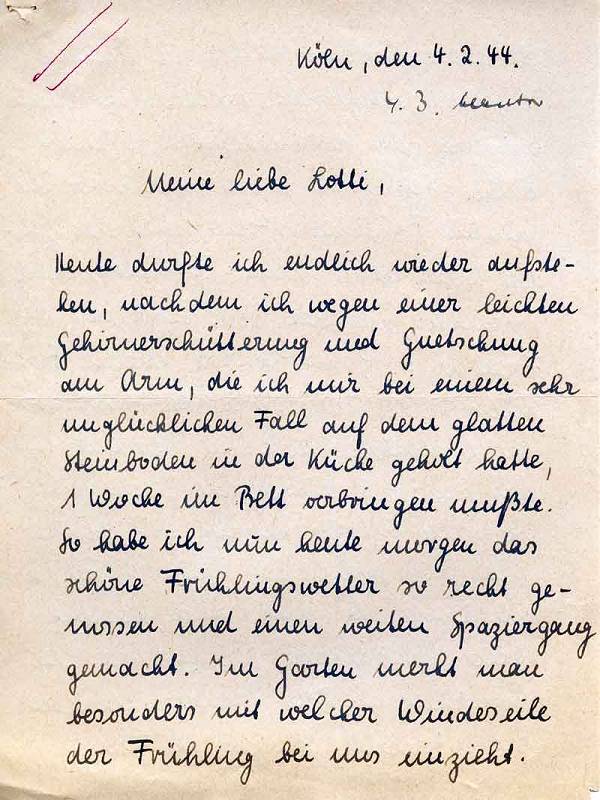 Köln, den 4. 2. 44.
4. 3. beantw
Meine liebe Lotti,
Heute durfte ich endlich wieder aufste-
hen, nachdem ich wegen einer leichten
Gehirnerschütterung und Quetschung
am Arm, die ich mir bei einem sehr
unglücklichen Fall auf dem glatten
Steinboden in der Küche geholt hatte,
1 Woche im Bett verbringen mußte.
So habe ich nun heute morgen das
schöne Frühlingswetter so recht ge-
nossen und einen weiten Spaziergang
gemacht. Im Garten merkt man
besonders mit welcher Windeseile
der Frühling bei uns einzieht.